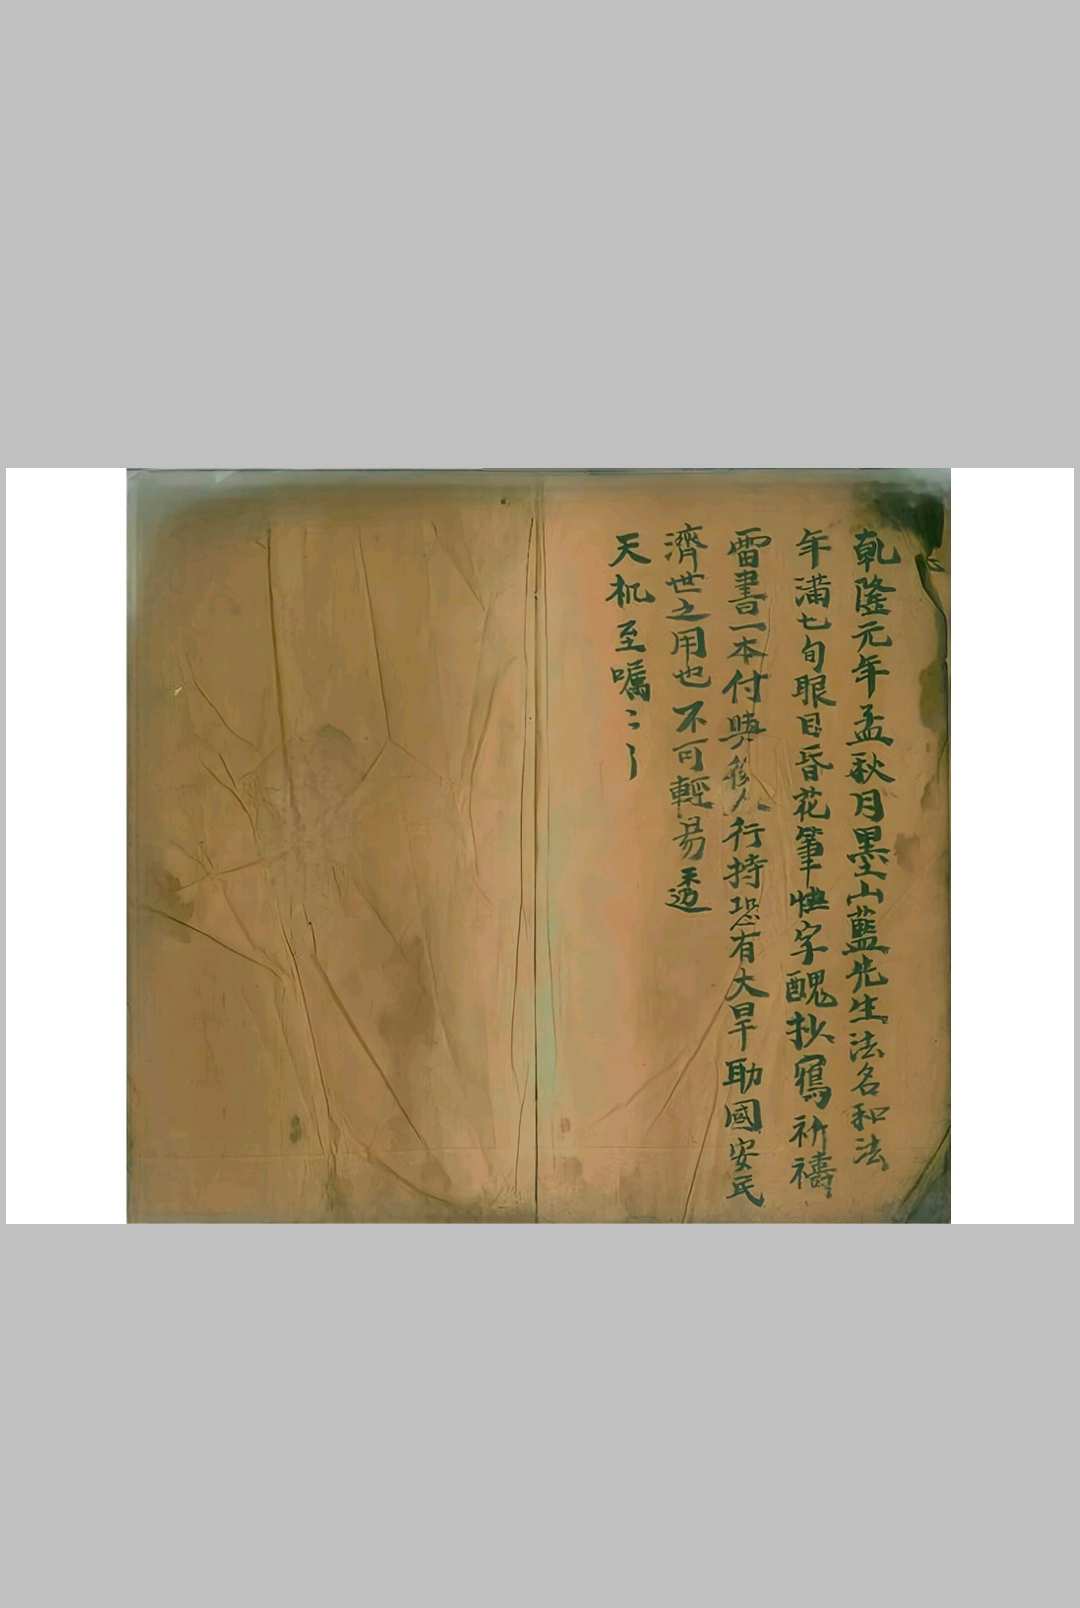 乾隆元年孟秋月墨山藍先生法名和法
年滿七旬眼目昏花筆快字醜抄寫祈禱
雷書一本付與後人行持恐有大旱助國安民
濟世之用也不可輕易透
天机至囑〻